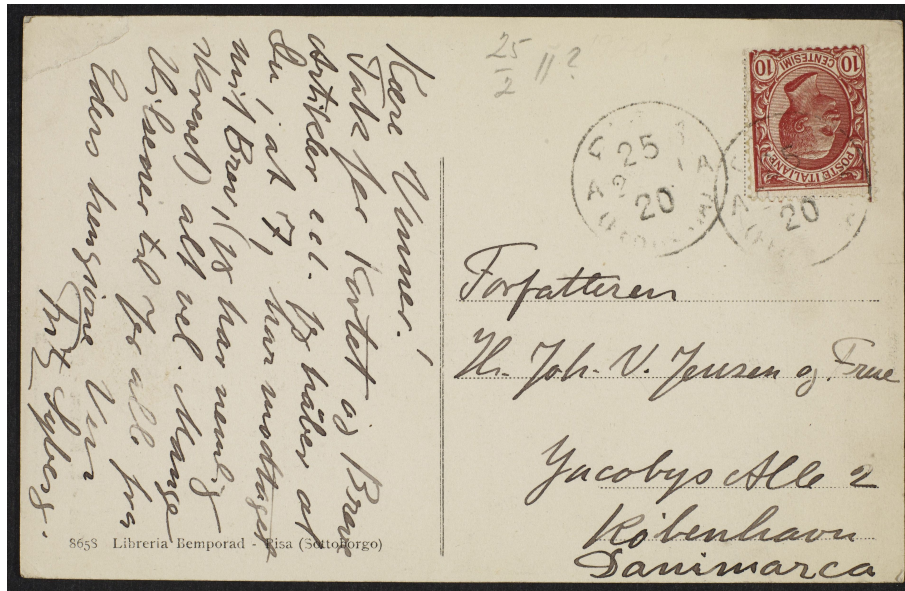 Kære Venner!
Tak for Kortet og Brev
Artikler etc. Jeg håber at
Du, at I, har modtaget
mit Brev, (jeg har nemlig
skrevet) alt vel. Mange
Hilsener til Jer alle fra
Eders hengivne Ven
Fritz Syberg.
8658 Libreria Bemporad - Pisa (Sottoborgo)
25
2 11?
25
2
20
20
10 10
CENTESIMI
POSTE ITALIANE
Forfatteren
Hr. Joh. V. Jensen og Frue
Jacobys Alle 2
København
Danimarca